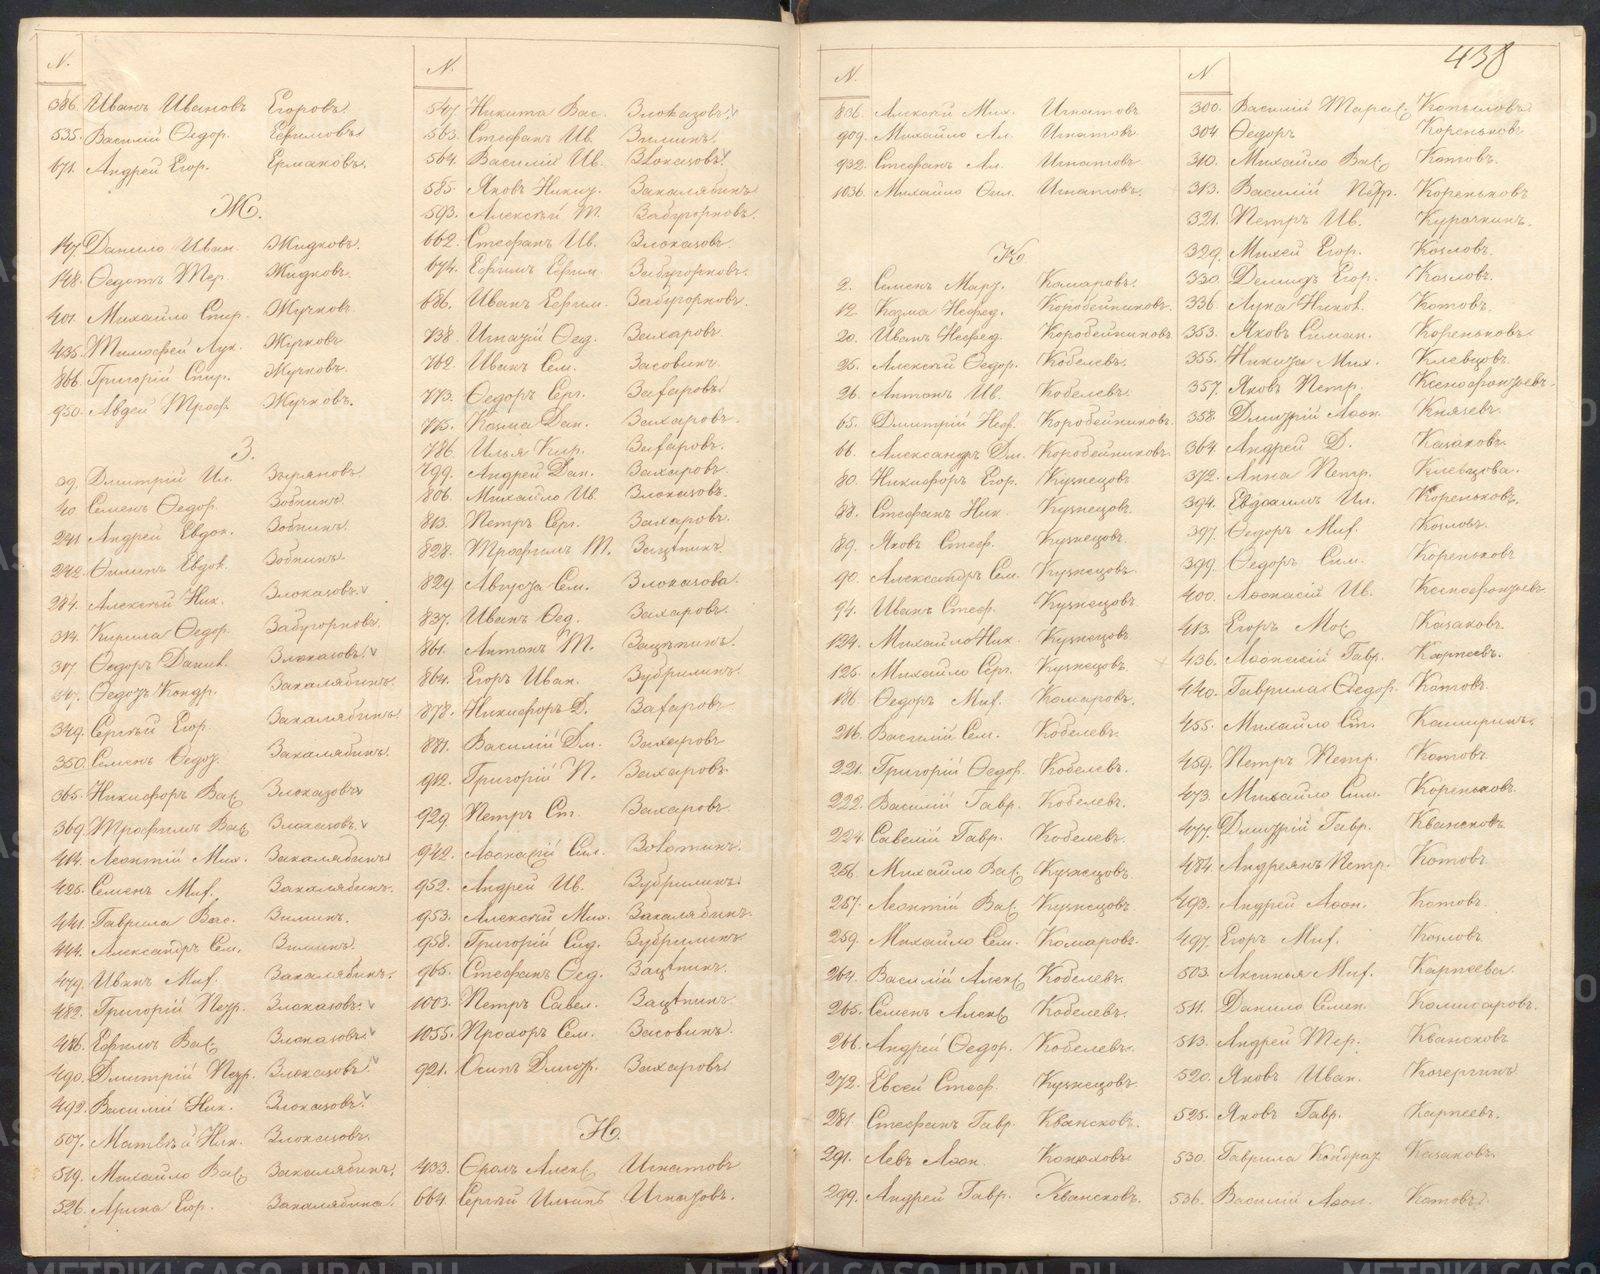 N.
386. Иванъ Ивановъ Егоровъ.
535. Василій Ѳедор. Ефимовъ
671. Андрей Егор. Ермаковъ.
Ж.
147. Данило Иван. Жидковъ.
148. Ѳедотъ Тер. Жидковъ.
401. Михайло Спир. Жучковъ
435. Тимофей Лук. Жучковъ
866. Григорій Спир. Жучковъ.
950. Авдей Троф. Жучковъ.
З.
29. Дмитрій Ил. Зыряновъ
40. Семенъ Ѳедор. Зобнинъ
241. Андрей Евдок. Зобнинъ.
242. Филипъ Евдок. Зобнинъ
284. Алексѣй Ник. Злоказовъ.
314. Кирила Ѳедор. Забугорновъ.
317. Ѳедоръ Данил. Злоказовъ.
347. Ѳедотъ Кондр. Закалябинъ.
349. Сергѣй Егор. Закалябинъ
350. Семенъ Ѳедот. Закалябинъ.
365. Никифоръ Вас. Злоказовъ
369. Трофимъ Вас. Злоказовъ.
414. Леонтій Мих. Закалябинъ
425. Семенъ Мих. Закалябинъ.
441. Гаврила Вас. Зиминъ.
444. Александръ Сем. Зиминъ.
479. Иванъ Мих. Закалябинъ.
482. Григорій Петр. Злоказовъ.
486. Ефимъ Вас. Злоказовъ.
490. Дмитрій Петр. Злоказовъ.
492. Василій Ник. Злоказовъ.
507. Матвѣй Ник. Злоказовъ.
519. Михайло Вас. Закалябинъ.
526. Арина Егор. Закалябина.
N.
547. Никита Вас. Злоказовъ.
563. Стефанъ Ив. Зиминъ.
564. Василій Ив. Злоказовъ.
585. Яковъ Никит. Закалябинъ
593. Алексѣй Т. Забугорновъ.
662. Стефанъ Ив. Злоказовъ.
674. Ефимъ Ефим. Забугорновъ.
686. Иванъ Ефим. Забугорновъ.
738. Игнатій Ѳед. Захаровъ
762. Иванъ Сем. Засовинъ
773. Ѳедоръ Серг. Захаровъ
775. Козма Дан. Захаровъ.
786. Илья Кир. Захаровъ.
799. Андрей Дан. Захаровъ.
806. Михайло Ив. Злоказовъ.
813. Петръ Серг. Захаровъ.
828. Трофимъ Т. Зацѣпинъ
829. Августа Сем. Злоказова.
837. Иванъ Ѳед. Захаровъ.
861. Антонъ Т. Зацѣпинъ.
864. Егоръ Иван. Зубрилинъ.
878. Никифоръ Д. Захаровъ
881. Василій Дм. Захаровъ
912. Григорій П. Захаровъ.
929. Петръ Ст. Захаровъ
942. Афонасій Сил. Золотинъ.
952. Андрей Ив. Зубрилинъ.
953. Алексѣй Мих. Закалябинъ.
958. Григорій Сид. Зубрилинъ
965. Стефанъ Ѳед. Зацѣпинъ.
1003. Петръ Савел. Зацѣпинъ
1055. Прохоръ Сем. Засовинъ.
921. Осипъ Дмитр. Захаровъ
И.
433. Фролъ Алекс. Игнатовъ
664. Сергѣй Ильинъ Игнатовъ.
438
N.
836. Алексѣй Мих. Игнатовъ
909. Михайло Ал. Игнатовъ
932. Стефанъ Ал. Игнатовъ
1036. Михайло Фил. Игнатовъ.
К
2. Семенъ Март. Комаровъ.
12. Козма Нефед. Коробейниковъ.
20. Иванъ Нефед. Коробейниковъ
25. Алексѣй Ѳедор. Кобелевъ.
26. Антонъ Ив. Кобелевъ.
65. Дмитрій Неф. Коробейниковъ.
66. Александръ Дм. Коробейниковъ.
80. Никифоръ Егор. Кузнецовъ
88. Стефанъ Ник. Кузнецовъ.
89. Яковъ Стеф. Кузнецовъ.
90. Александръ Сем. Кузнецовъ.
94. Иванъ Стеф. Кузнецовъ
124. Михайло Ник. Кузнецовъ
125. Михайло Серг. Кузнецовъ.
186. Ѳедоръ Мих. Комаровъ.
216. Василій Сем. Кобелевъ.
221. Григорій Ѳедор. Кобелевъ.
222. Василій Гавр. Кобелевъ.
224. Савелій Гавр. Кобелевъ.
256. Михайло Вас. Кузнецовъ
257. Леонтій Вас. Кузнецовъ
259. Михайло Сем. Комаровъ.
264. Василій Алекс. Кобелевъ.
265. Семенъ Алекс. Кобелевъ.
266. Андрей Ѳедор. Кобелевъ.
272. Евсей Стеф. Кузнецовъ.
281. Стефанъ Гавр. Квансковъ.
291. Левъ Афон. Конюховъ
299. Андрей Гавр. Квансковъ.
N
300. Василій Тарас. Копыловъ
304. Ѳедоръ Кореньковъ
310. Михайло Вас. Котовъ.
313. Василій Петр. Кореньковъ
321. Петръ Ив. Курочкинъ.
329. Михей Егор. Козловъ.
330. Демидъ Егор. Козловъ.
336. Лука Никол. Котовъ.
353. Яковъ Симан. Кореньковъ.
355. Никита Мих. Клевцовъ.
357. Яковъ Петр. Ксенофонтьевъ.
358. Дмитрій Афон. Князевъ.
364. Андрей Д. Казаковъ.
372. Анна Петр. Клевцова.
394. Евдокимъ Ил. Кореньковъ.
397. Ѳедоръ Миф. Козловъ.
399. Ѳедоръ Сим. Кореньковъ
400. Афонасій Ив. Ксенофонтьевъ.
413. Егоръ Мос. Казаковъ
436. Афонасій Гавр. Карпеевъ.
440. Гаврила Ѳедор. Котовъ.
455. Михайло Ст. Каширинъ.
459. Петръ Петр. Котовъ
473. Михайло Сим. Кореньковъ.
477. Дмитрій Гавр. Квансковъ
484. Андреянъ Петр. Котовъ.
493. Андрей Афон. Котовъ.
497. Егоръ Миф. Козловъ
503. Аксинья Миф. Карпеева.
511. Данило Семен. Комисаровъ.
513. Андрей Тер. Квансковъ
520. Яковъ Иван. Кочергинъ
525. Яковъ Гавр. Карпеевъ.
530. Гаврила Кондрат. Казаковъ.
536. Василій Афон. Котовъ.